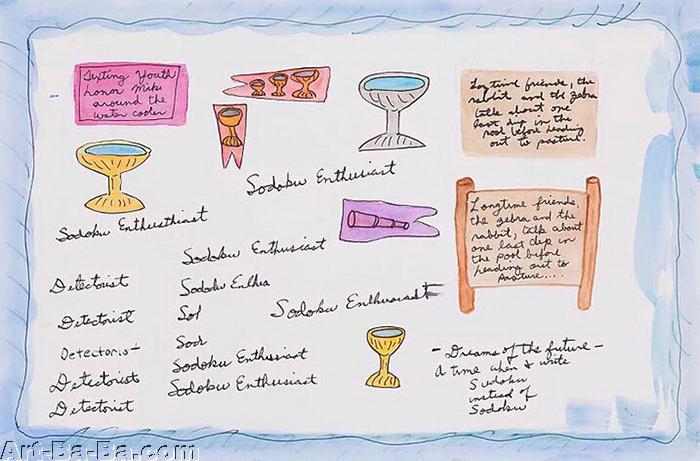 Texting Youth
honor Mike
around the
water cooler
Longtime friends, the
rabbit and the zebra
talk about one
last dip in the
pool before heading
out to pasture.
Sodoku Enthusiast
Sodoku Enthusthiast
Longtime friends,
the zebra and the
rabbit, talk about
one last dip in
the pool before
heading out to
pasture....
Sodoku Enthusiast
Detectorist
Sodoku Enthu
Sodoku Enthusiast
Detectorist
Sod
Detectorist
Sodo
Sodoku Enthusiast
Detectorist
Sodoku Enthusiast
Detectorist
- Dreams of the future -
A time when I write
Sudoku
instead of
Sodoku
Art-Ba-Ba.com